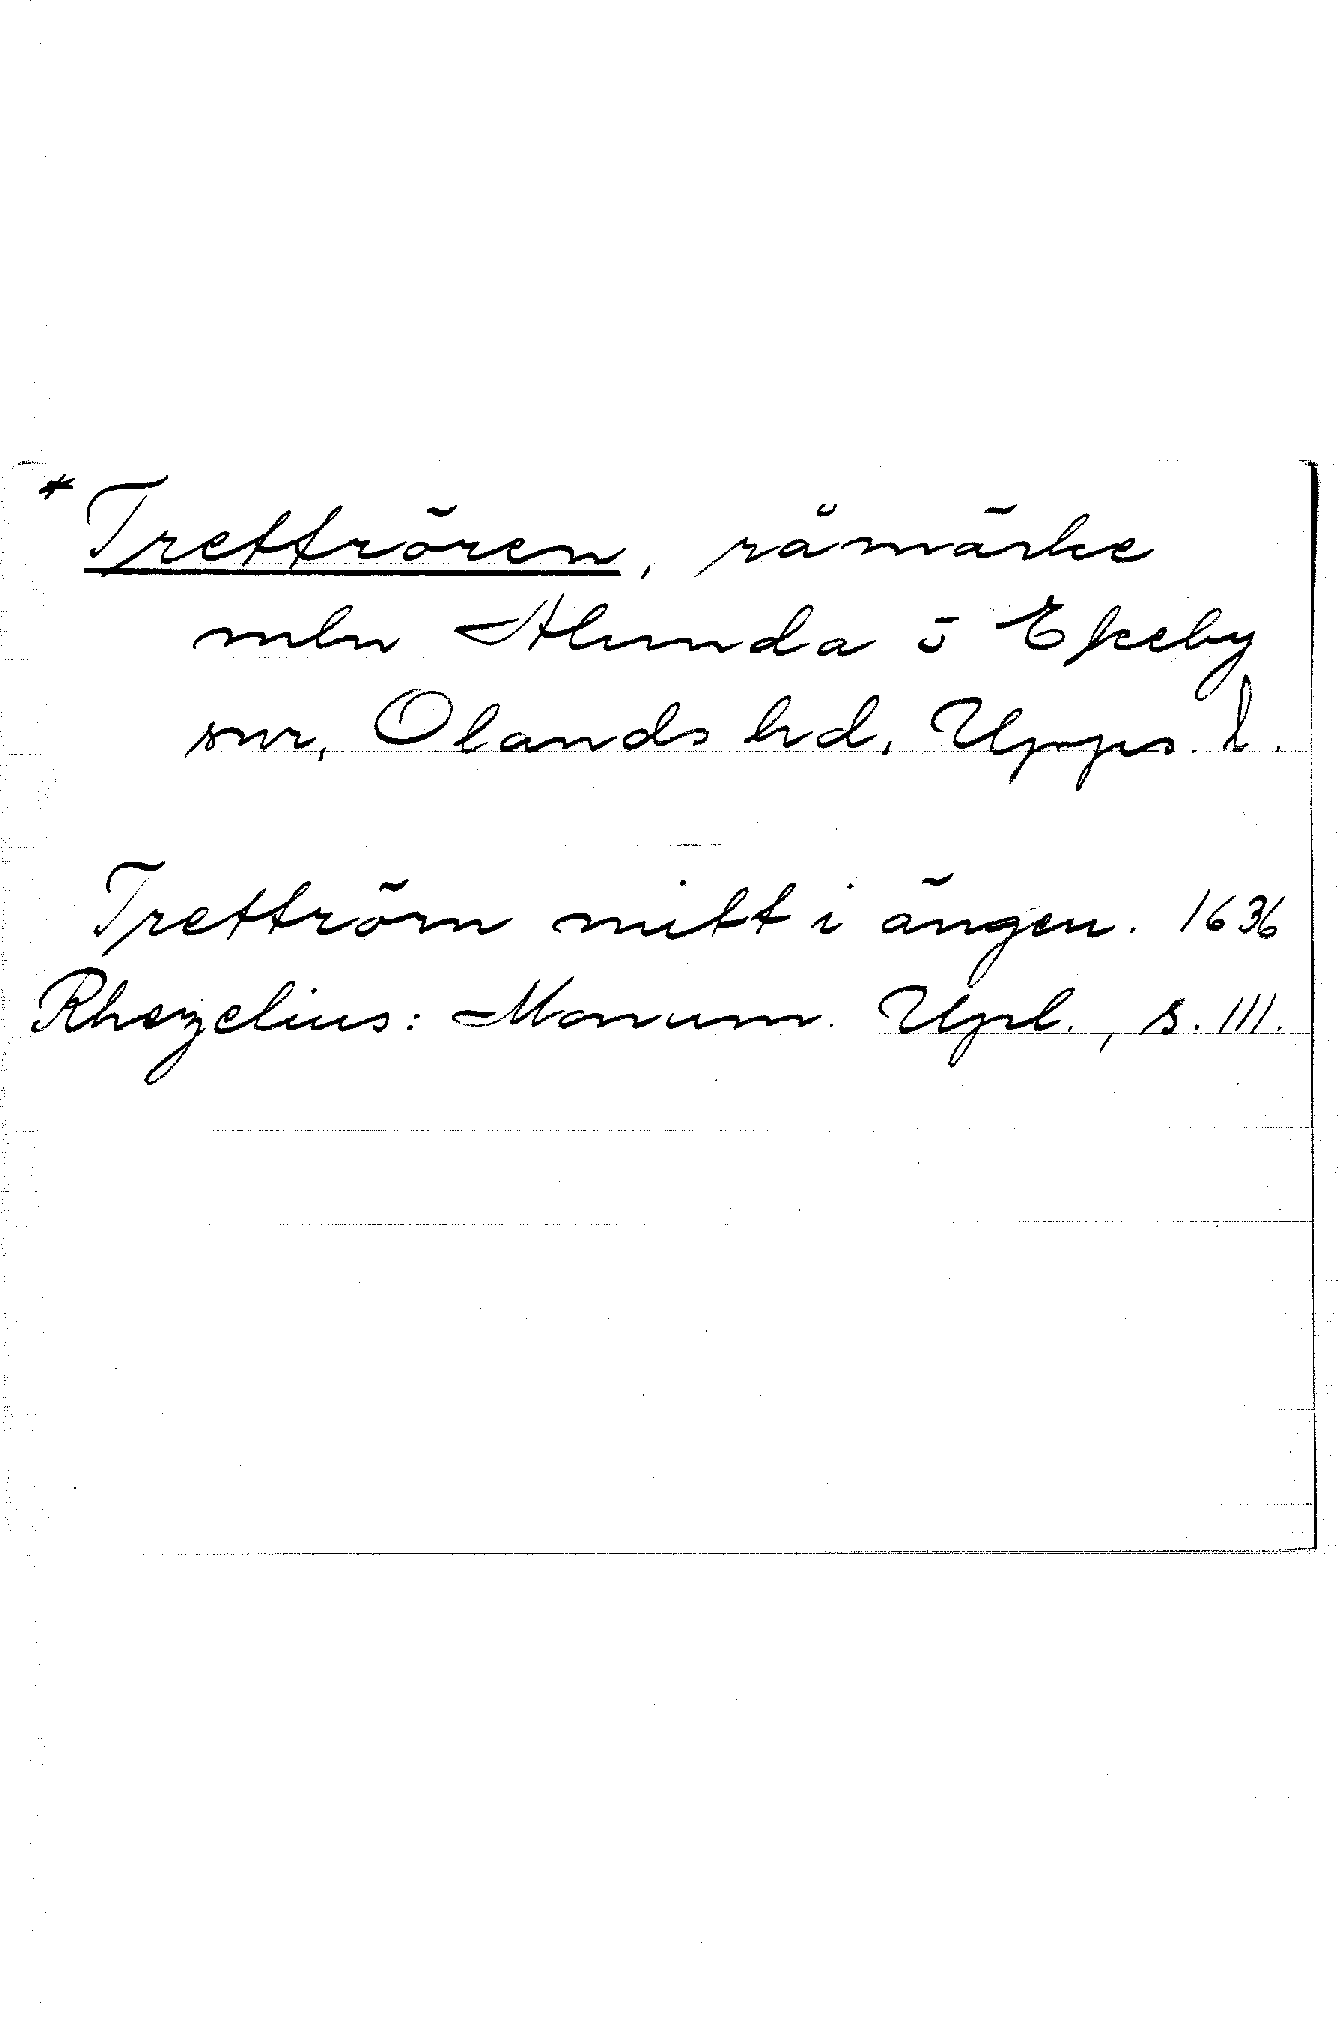 * Trettrören, råmärke
mln Alunda o Ekeby
snr, Olands hd, Upps. l.
Trettrörn mitt i ängen. 1636
Rhezelius: Monum. Upl., s. 111.